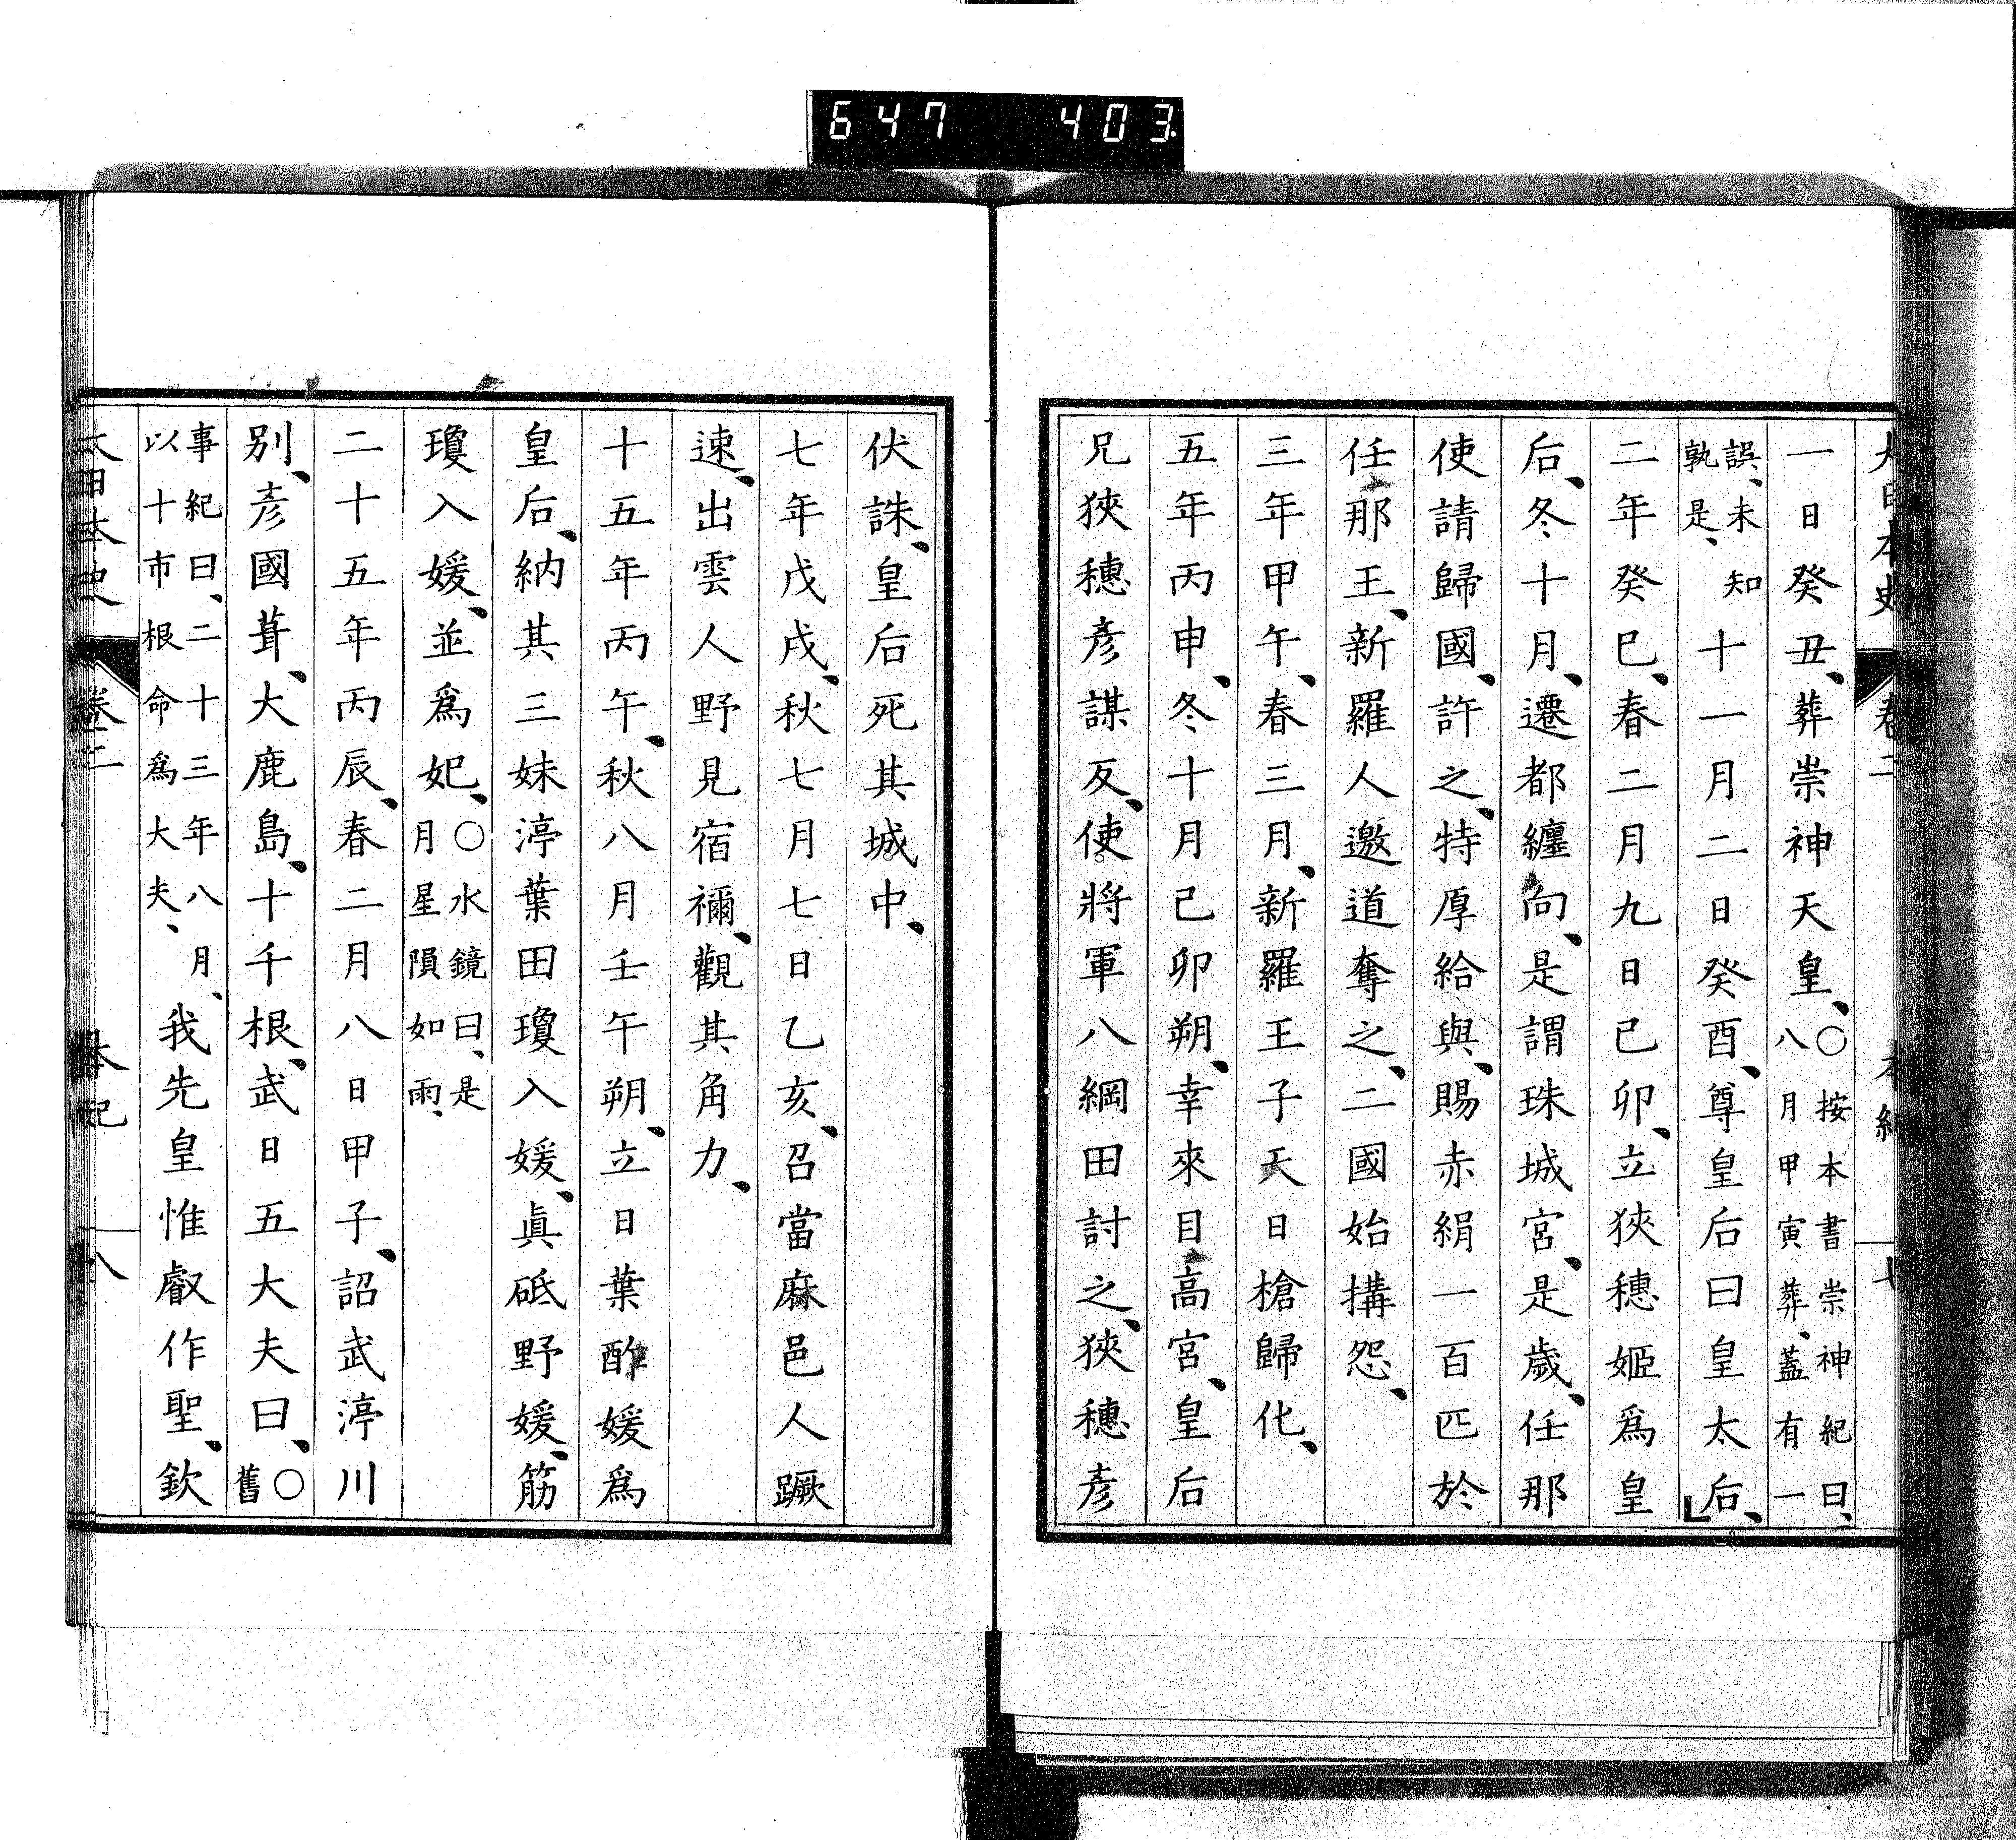 647 403
大日本史 卷二 本紀 七
一日癸丑、葬崇神天皇、○按本書崇神紀曰、八月甲寅葬、蓋有一
誤、未知孰是、十一月二日癸酉、尊皇后曰皇太后、
二年癸巳、春二月九日己卯、立狹穗姬爲皇
后、冬十月、遷都纏向、是謂珠城宮、是歲、任那
使請歸國、許之、特厚給與、賜赤絹一百匹於
任那王、新羅人邀道奪之、二國始搆怨、
三年甲午、春三月、新羅王子天日槍歸化、
五年丙申、冬十月己卯朔、幸來目高宮、皇后
兄狹穗彥謀反、使將軍八綱田討之、狹穗彥
伏誅、皇后死其城中、
七年戊戌、秋七月七日乙亥、召當麻邑人蹶
速、出雲人野見宿禰、觀其角力、
十五年丙午、秋八月壬午朔、立日葉酢媛爲
皇后、納其三妹渟葉田瓊入媛、眞砥野媛、筋
瓊入媛、並爲妃、○水鏡曰、是月星隕如雨、
二十五年丙辰、春二月八日甲子、詔武渟川
別、彥國葺、大鹿島、十千根、武日五大夫曰、○舊
事紀曰、二十三年八月、以十市根命爲大夫、我先皇惟叡作聖、欽
大日本史 卷二 本紀 八